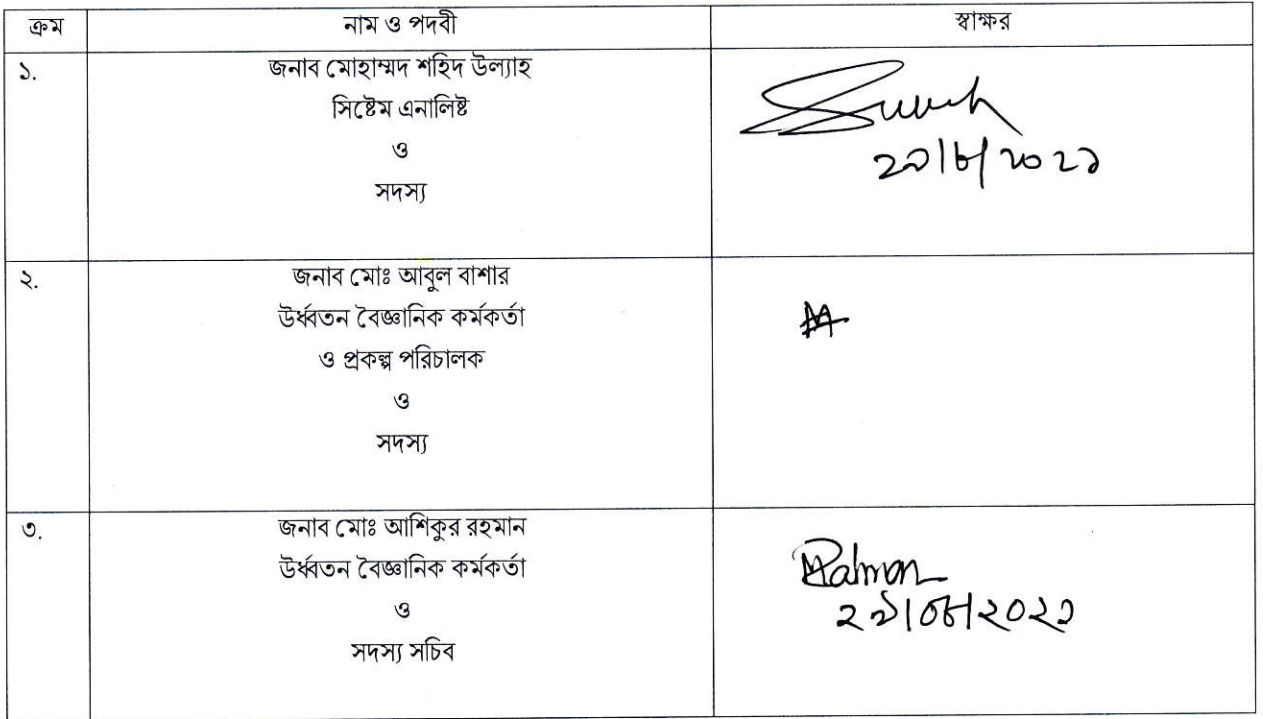 ক্রম নাম ও পদবী স্বাক্ষর
১. জনাব মোহাম্মদ শহিদ উল্যাহ
সিষ্টেম এনালিষ্ট
ও
সদস্য
২৯/৮/২০২১
২. জনাব মোঃ আবুল বাশার
উর্ধ্বতন বৈজ্ঞানিক কর্মকর্তা
ও প্রকল্প পরিচালক
ও
সদস্য
৩. জনাব মোঃ আশিকুর রহমান
উর্ধ্বতন বৈজ্ঞানিক কর্মকর্তা
ও
সদস্য সচিব
Rahman
২৯/০৮/২০২১